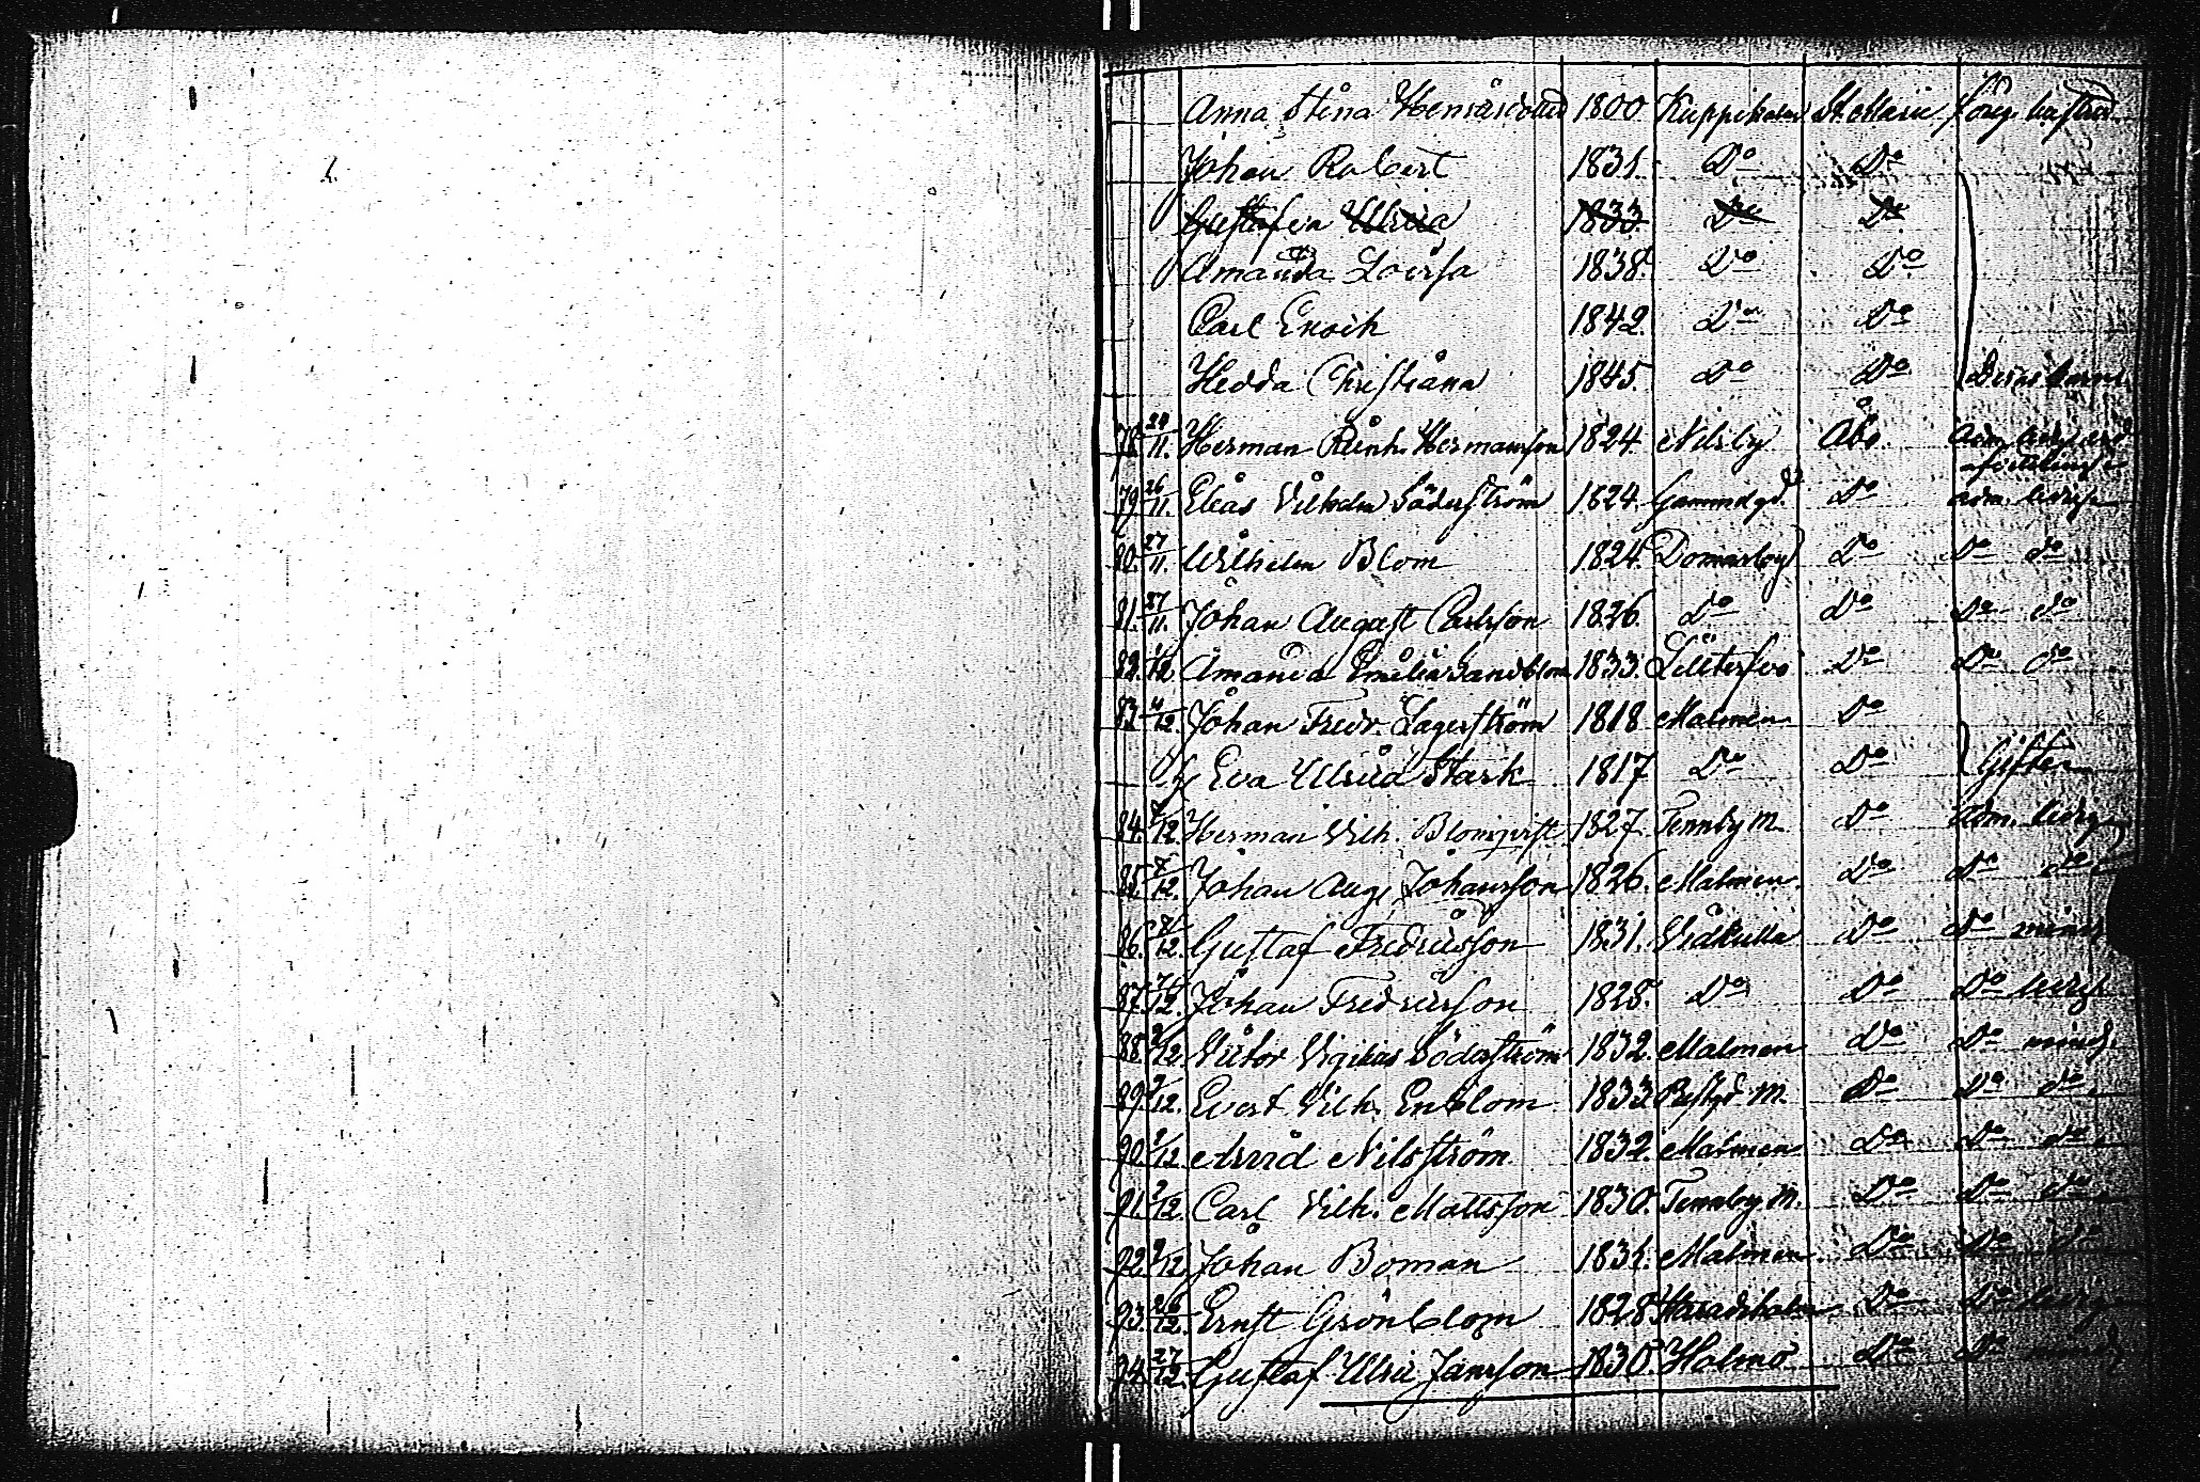 Anna Stina Henriksdotter 1800. Kuppiskalan St. Marie föreg. hustru
Johan Robert 1831. Do Do
Gustafva Ulrica 1833. Do Do
Amanda Lovisa 1838. Do Do
Carl Enoch 1842. Do Do
Hedda Christiana 1845. Do Do Deras barn
78. 24/11. Herman Reinh. Hermansson 1824. Nilsby Åbo.
79. 26/11. Elias Vilhelm Söderström 1824. Gammelgd. Do adm. ledig
80. 27/11. Wilhelm Blom 1824. Domarby Do Do do
81. 27/11. Johan August Carlsson 1826. Do Do Do do
82. 1/12. Amanda Emelia Sandblom 1833. Do Do do
83. 4/12. Johan Fredr. Lagerström 1818 Malmen Do
Eva Ulrica Stark 1817 Do Do Gifter
84. 8/12. Herman Vilh. Blomqvist 1827. Tennby M. Do Adm. ledig
85. 8/12. Johan Aug. Johansson 1826. Malmen. Do Do do
86. 8/12. Gustaf Fredricsson 1831. Vidkulla Do Do minder
87. 9/12. Johan Fredricsson 1828. Do Do Do ledig
88. 9/12. Victor Vigilius Söderström 1832. Malmen Do Do mind.
89. 9/12. Evert Vilh. Enblom 1833. Prestgd M. Do Do do
90. 9/12. Arvid Nilsström 1832. Malmen Do Do do
91. 9/12. Carl Vilh. Mattsson 1830. Tennby M. Do Do do
92. 9/12. Johan Boman 1831. Malmen Do Do do
93. 26/12. Ernst Grönblom 1828. Haradsholm Do Do ledig
94. 27/12. Gustaf Ulric Jansson 1830. Holmo Do Do